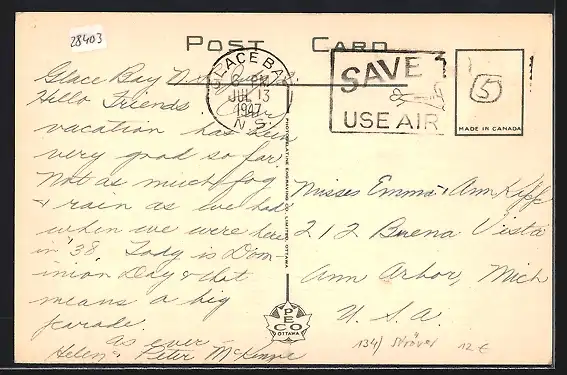 28403
POST CARD
GLACE BAY
6 PM
JUL 13
1947
N.S.
SAVE
USE AIR
5
MADE IN CANADA
Glace Bay N.S.
Hello Friends. Our
vacation has been
very good so far.
Not as much fog
& rain as we had
when we were here
in '38. Today is Dom-
inion Day & that
means a big
parade.
as ever
Helen & Peter McKenzie
PHOTOGELATINE ENGRAVING CO. LIMITED, OTTAWA
PECO
OTTAWA
Misses Emma & Ann Kipp
212 Buena Vista
Ann Arbor, Mich
U.S.A.
134/
12 €